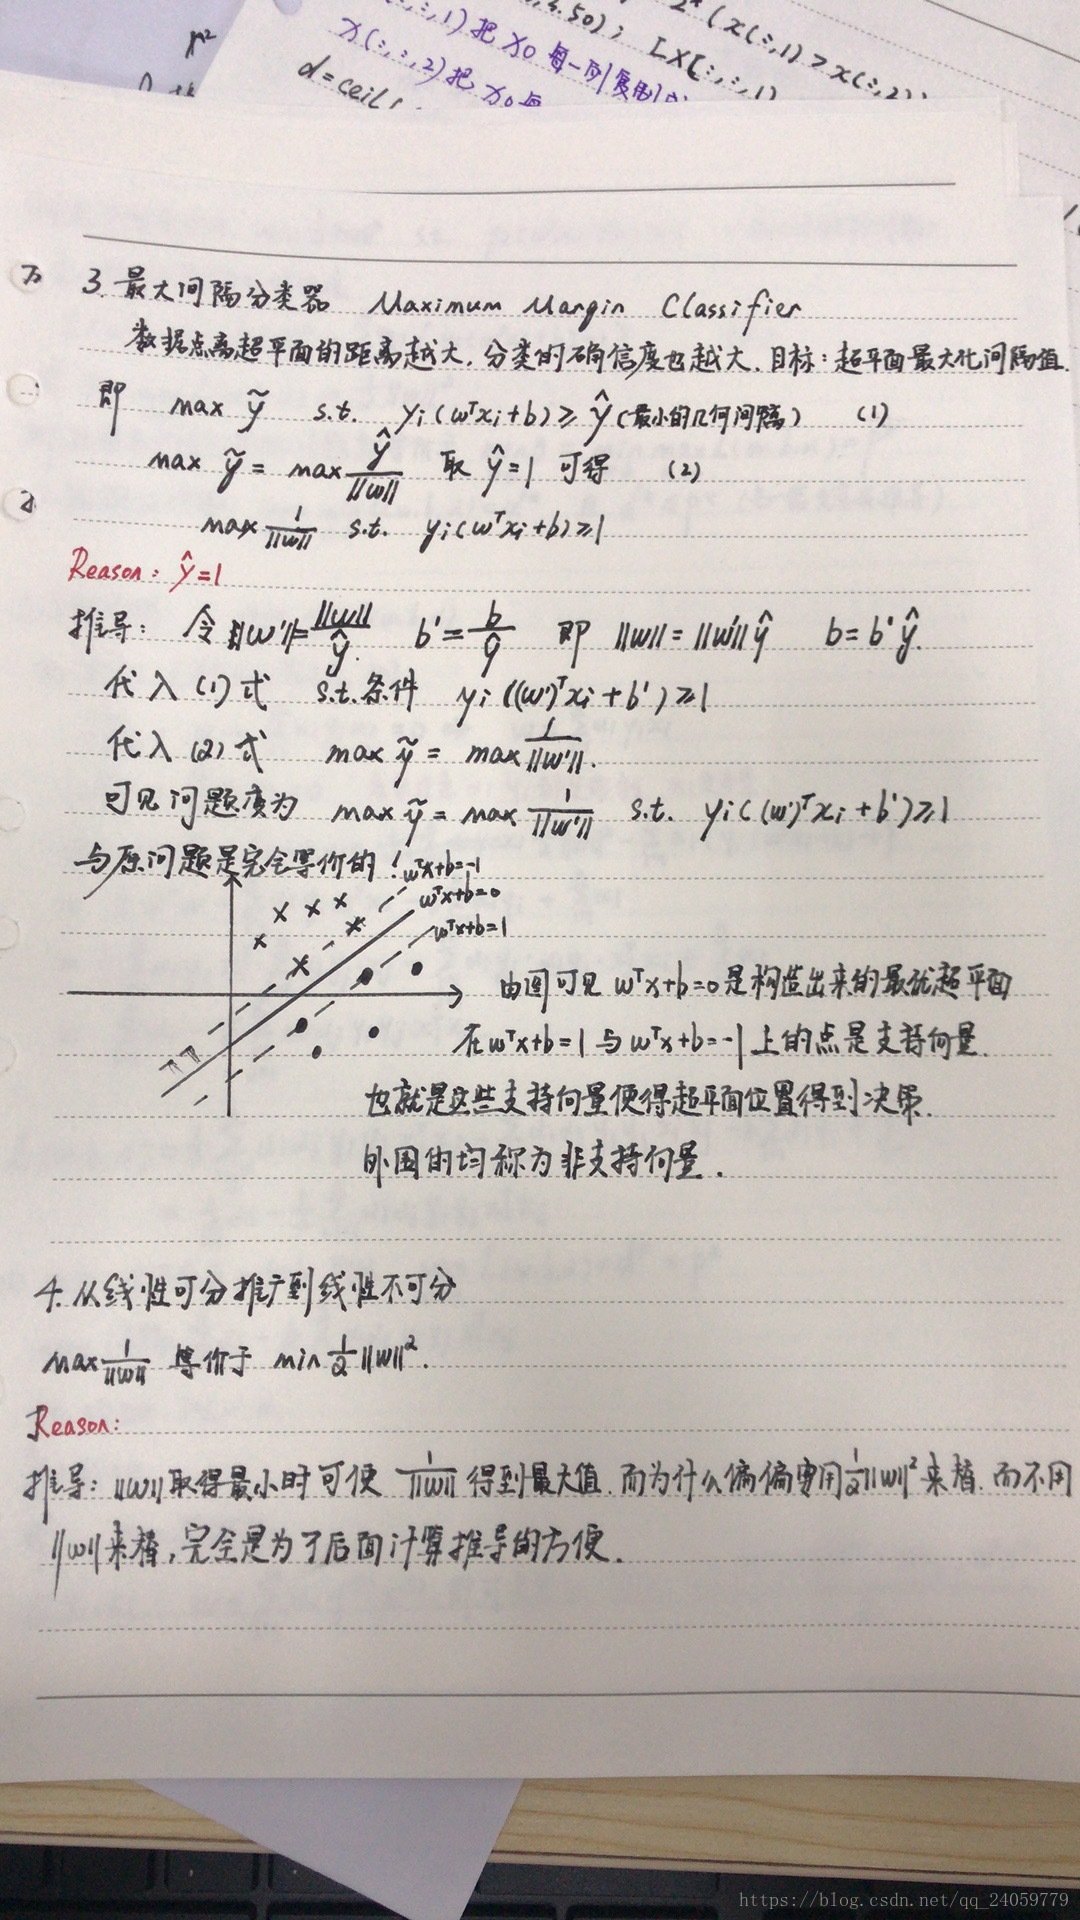 x(:,:,1)把x0每一列复制
x(:,:,2)把x0
d=ceil(
2*(x(:,1)>x(:,2)
3. 最大间隔分类器 Maximum Margin Classifier
数据点离超平面的距离越大,分类的确信度也越大.目标:超平面最大化间隔值.
即 max ỹ s.t. yi(wᵀxi+b)≥ŷ(最小的几何间隔) (1)
max ỹ = max ŷ/||w|| 取 ŷ=1 可得 (2)
max 1/||w|| s.t. yi(wᵀxi+b)≥1
Reason: ŷ=1
推导: 令||w'||=||w||/ŷ. b'=b/ŷ 即 ||w||=||w'||ŷ b=b'ŷ.
代入(1)式 s.t.条件 yi((w')ᵀxi+b')≥1
代入(2)式 max ỹ = max 1/||w'||.
可见问题变为 max ỹ = max 1/||w'|| s.t. yi((w')ᵀxi+b')≥1
与原问题是完全等价的!
wᵀx+b=-1
wᵀx+b=0
wᵀx+b=1
由图可见 wᵀx+b=0是构造出来的最优超平面
在wᵀx+b=1与wᵀx+b=-1上的点是支持向量.
也就是这些支持向量使得超平面位置得到决策.
外围的均称为非支持向量.
4. 从线性可分推广到线性不可分
max 1/||w|| 等价于 min 1/2||w||².
Reason:
推导: ||w||取得最小时可使 1/||w|| 得到最大值.而为什么偏偏要用1/2||w||²来替.而不用
||w||来替,完全是为了后面计算推导的方便.
https://blog.csdn.net/qq_24059779